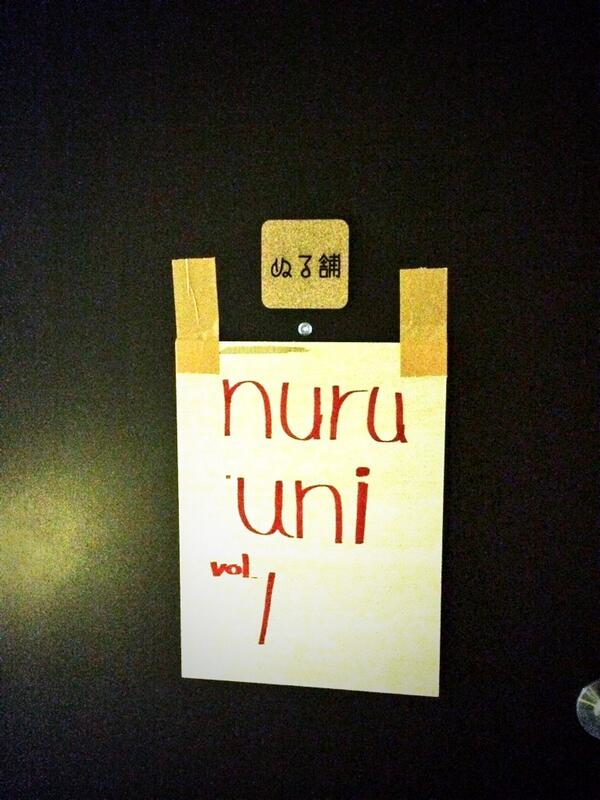 ぬる舗
nuru
uni
vol.
1